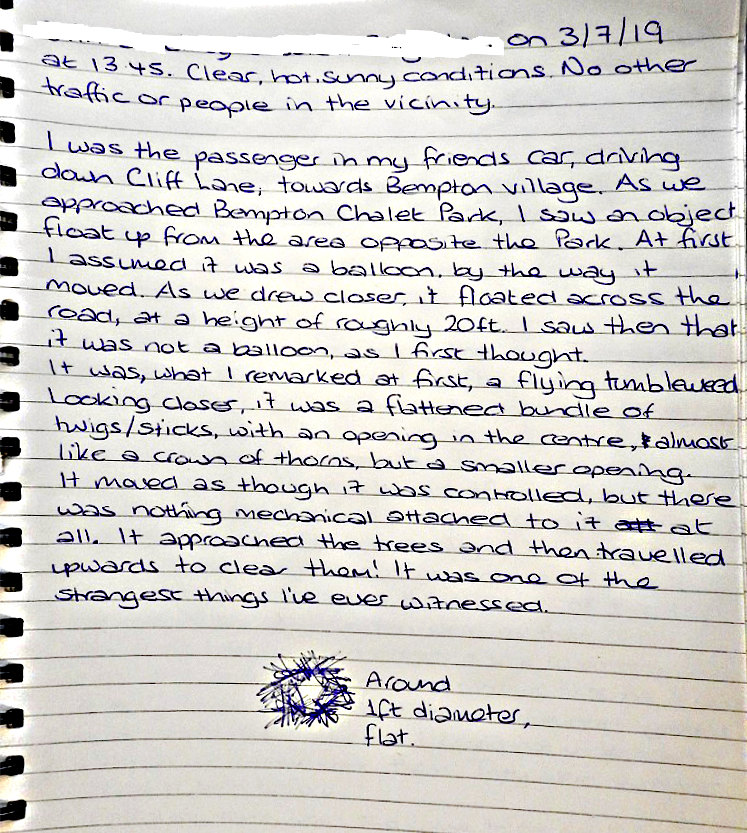 on 3/7/19
at 13.45. Clear, hot, sunny conditions. No other
traffic or people in the vicinity.
I was the passenger in my friends car, driving
down Cliff Lane, towards Bempton village. As we
approached Bempton Chalet Park, I saw an object
float up from the area opposite the Park. At first
I assumed it was a balloon, by the way it
moved. As we drew closer, it floated across the
road, at a height of roughly 20ft. I saw then that
it was not a balloon, as I first thought.
It was, what I remarked at first, a flying tumbleweed.
Looking closer, it was a flattened bundle of
twigs/sticks, with an opening in the centre, almost
like a crown of thorns, but a smaller opening.
It moved as though it was controlled, but there
was nothing mechanical attached to it at
all. It approached the trees and then travelled
upwards to clear them! It was one of the
strangest things I've ever witnessed.
Around
1ft diameter,
flat.